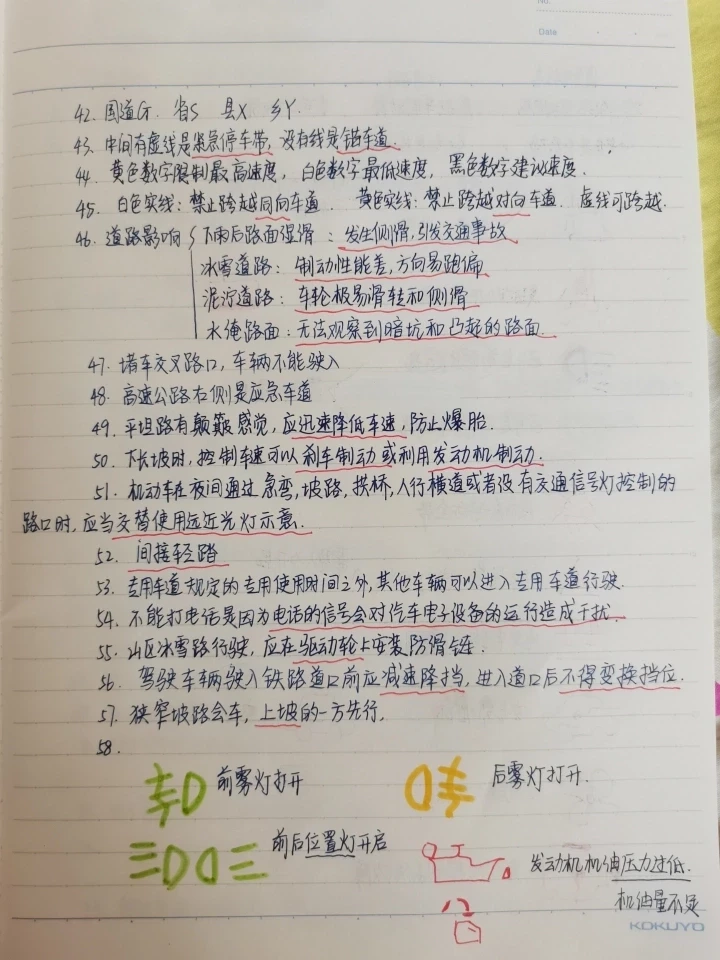 No.
Date
42. 国道G. 省S 县X. 乡Y.
43. 中间有虚线是紧急停车带, 没有线是错车道.
44. 黄色数字限制最高速度, 白色数字最低速度, 黑色数字建议速度.
45. 白色实线: 禁止跨越同向车道. 黄色实线: 禁止跨越对向车道. 虚线可跨越.
46. 道路影响 { 下雨后路面湿滑: 发生侧滑, 引发交通事故
冰雪道路: 制动性能差, 方向易跑偏
泥泞道路: 车轮极易滑转和侧滑
水淹路面: 无法观察到暗坑和凸起的路面
47. 堵车交叉路口, 车辆不能驶入
48. 高速公路右侧是应急车道
49. 平坦路有颠簸感觉, 应迅速降低车速, 防止爆胎.
50. 下长坡时, 控制车速可以刹车制动或利用发动机制动.
51. 机动车在夜间通过急弯, 坡路, 拱桥, 人行横道或者没有交通信号灯控制的
路口时, 应当交替使用远近光灯示意.
52. 间接轻踏
53. 专用车道规定的专用使用时间之外, 其他车辆可以进入专用车道行驶.
54. 不能打电话是因为电话的信号会对汽车电子设备的运行造成干扰.
55. 山区冰雪路行驶, 应在驱动轮上安装防滑链.
56. 驾驶车辆驶入铁路道口前应减速降挡, 进入道口后不得变换挡位.
57. 狭窄坡路会车, 上坡的一方先行.
58.
前雾灯打开 后雾灯打开.
前后位置灯开启
发动机机油压力过低.
机油量不足
KOKUYO